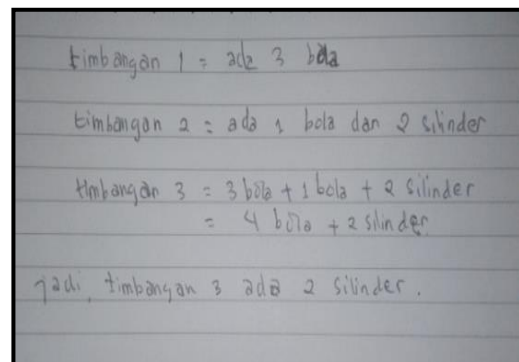 timbangan 1 = ada 3 bola
timbangan 2 = ada 1 bola dan 2 silinder
timbangan 3 = 3 bola + 1 bola + 2 silinder
= 4 bola + 2 silinder
jadi, timbangan 3 ada 2 silinder.